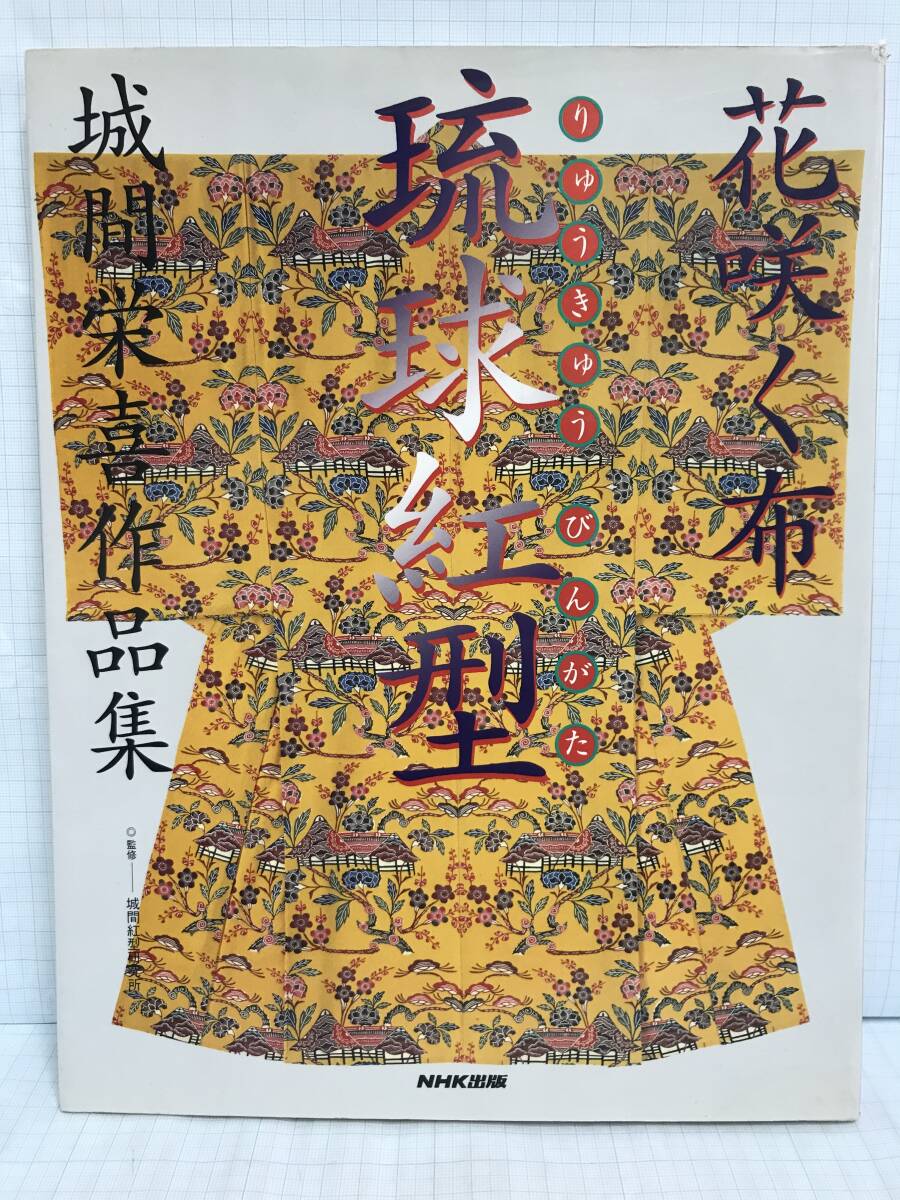 花咲く布
琉球紅型
りゅうきゅうびんがた
城間栄喜作品集
◎監修――城間紅型研究所
NHK出版